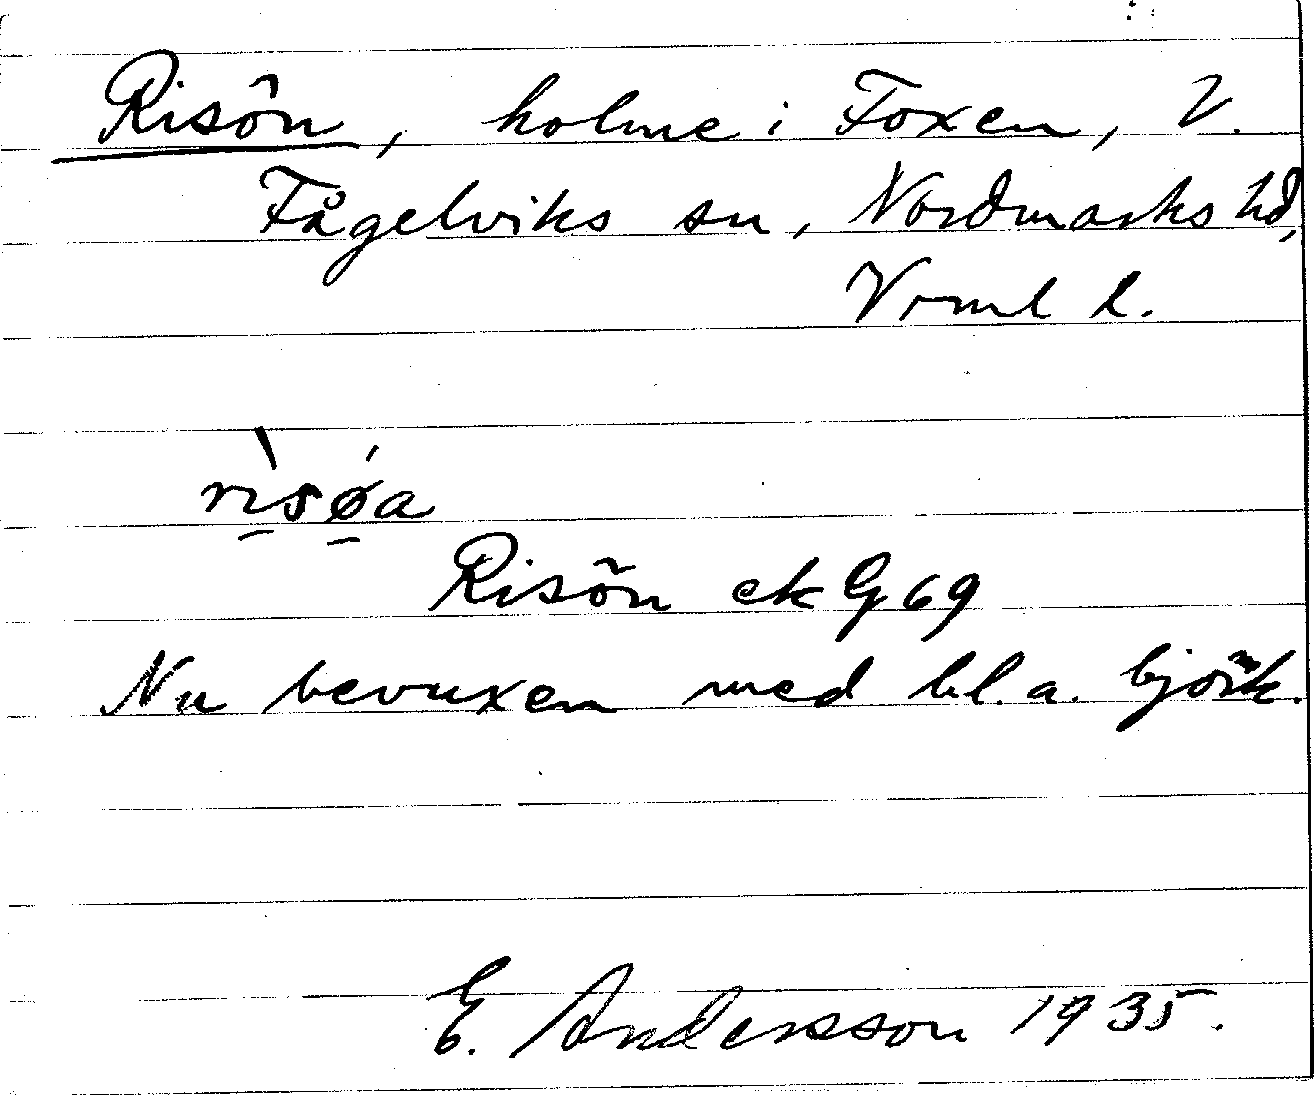 Risön, holme i Foxen, V.
Fågelviks sn, Nordmarks hd,
Vrml l.
rìsǿ̱a
Risön ek G 69
Nu bevuxen med bl.a. björk.
E. Andersson 1935.